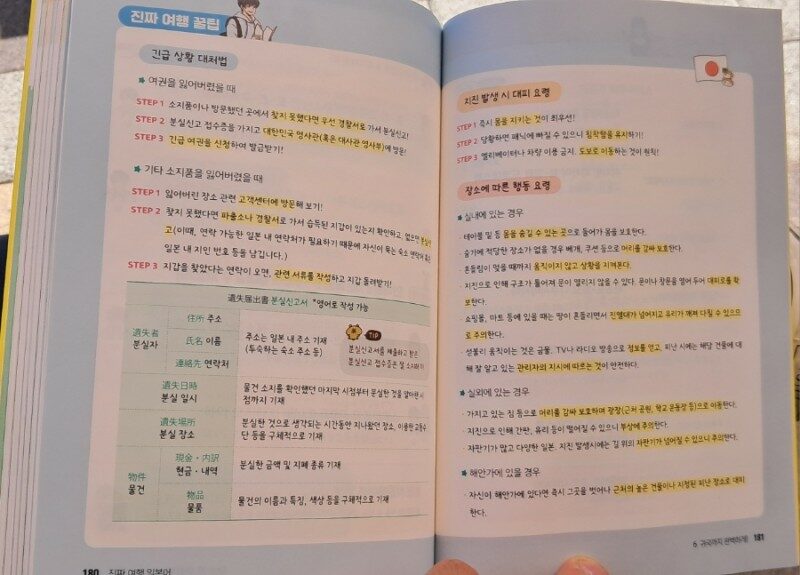 진짜 여행 꿀팁
긴급 상황 대처법
여권을 잃어버렸을 때
STEP 1 소지품이나 방문했던 곳에서 찾지 못했다면 우선 경찰서로 가서 분실신고!
STEP 2 분실신고 접수증을 가지고 대한민국 영사관(혹은 대사관 영사부)에 방문!
STEP 3 긴급 여권을 신청하여 발급받기!
기타 소지품을 잃어버렸을 때
STEP 1 잃어버린 장소 관련 고객센터에 방문해 보기!
STEP 2 찾지 못했다면 파출소나 경찰서로 가서 습득된 지갑이 있는지 확인하고, 없으면 분실신
고(이때, 연락 가능한 일본 내 연락처가 필요하기 때문에 자신이 묵는 숙소 연락처
일본 내 지인 번호 등을 남깁니다.)
STEP 3 지갑을 찾았다는 연락이 오면, 관련 서류를 작성하고 지갑 돌려받기!
遺失届出書 분실신고서 *영어로 작성 가능
遺失者
분실자
住所 주소
氏名 이름
連絡先 연락처
주소는 일본 내 주소 기재
(투숙하는 숙소 주소 등)
TIP
분실신고서를 제출하고 받은
분실신고 접수증은 잘 소지하기!
遺失日時
분실 일시
물건 소지를 확인했던 마지막 시점부터 분실한 것을 알아차린 시
점까지 기재
遺失場所
분실 장소
분실한 것으로 생각되는 시간동안 지나왔던 장소, 이용한 교통수
단 등을 구체적으로 기재
物件
물건
現金・内訳
현금・내역
분실한 금액 및 지폐 종류 기재
物品
물품
물건의 이름과 특징, 색상 등을 구체적으로 기재
180 진짜 여행 일본어
지진 발생 시 대피 요령
STEP 1 즉시 몸을 지키는 것이 최우선!
STEP 2 당황하면 패닉에 빠질 수 있으니 침착함을 유지하기!
STEP 3 엘리베이터나 차량 이용 금지, 도보로 이동하는 것이 원칙!
장소에 따른 행동 요령
실내에 있는 경우
· 테이블 밑 등 몸을 숨길 수 있는 곳으로 들어가 몸을 보호한다.
숨기에 적당한 장소가 없을 경우 베개, 쿠션 등으로 머리를 감싸 보호한다.
· 흔들림이 멎을 때까지 움직이지 않고 상황을 지켜본다.
· 지진으로 인해 구조가 틀어져 문이 열리지 않을 수 있다. 문이나 창문을 열어 두어 대피로를 확
보한다.
· 쇼핑몰, 마트 등에 있을 때는 땅이 흔들리면서 진열대가 넘어지고 유리가 깨져 다칠 수 있으므
로 주의한다.
· 섣불리 움직이는 것은 금물. TV나 라디오 방송으로 정보를 얻고, 피난 시에는 해당 건물에 대
해 잘 알고 있는 관리자의 지시에 따르는 것이 안전하다.
실외에 있는 경우
· 가지고 있는 짐 등으로 머리를 감싸 보호하며 광장(근처 공원, 학교 운동장 등)으로 이동한다.
· 지진으로 인해 간판, 유리 등이 떨어질 수 있으니 부상에 주의한다.
· 자판기가 많고 다양한 일본. 지진 발생시에는 길 위의 자판기가 넘어질 수 있으니 주의한다.
해안가에 있을 경우
· 자신이 해안가에 있다면 즉시 그곳을 벗어나 근처의 높은 건물이나 지정된 피난 장소로 대피
한다.
6. 귀국까지 완벽하게! 181